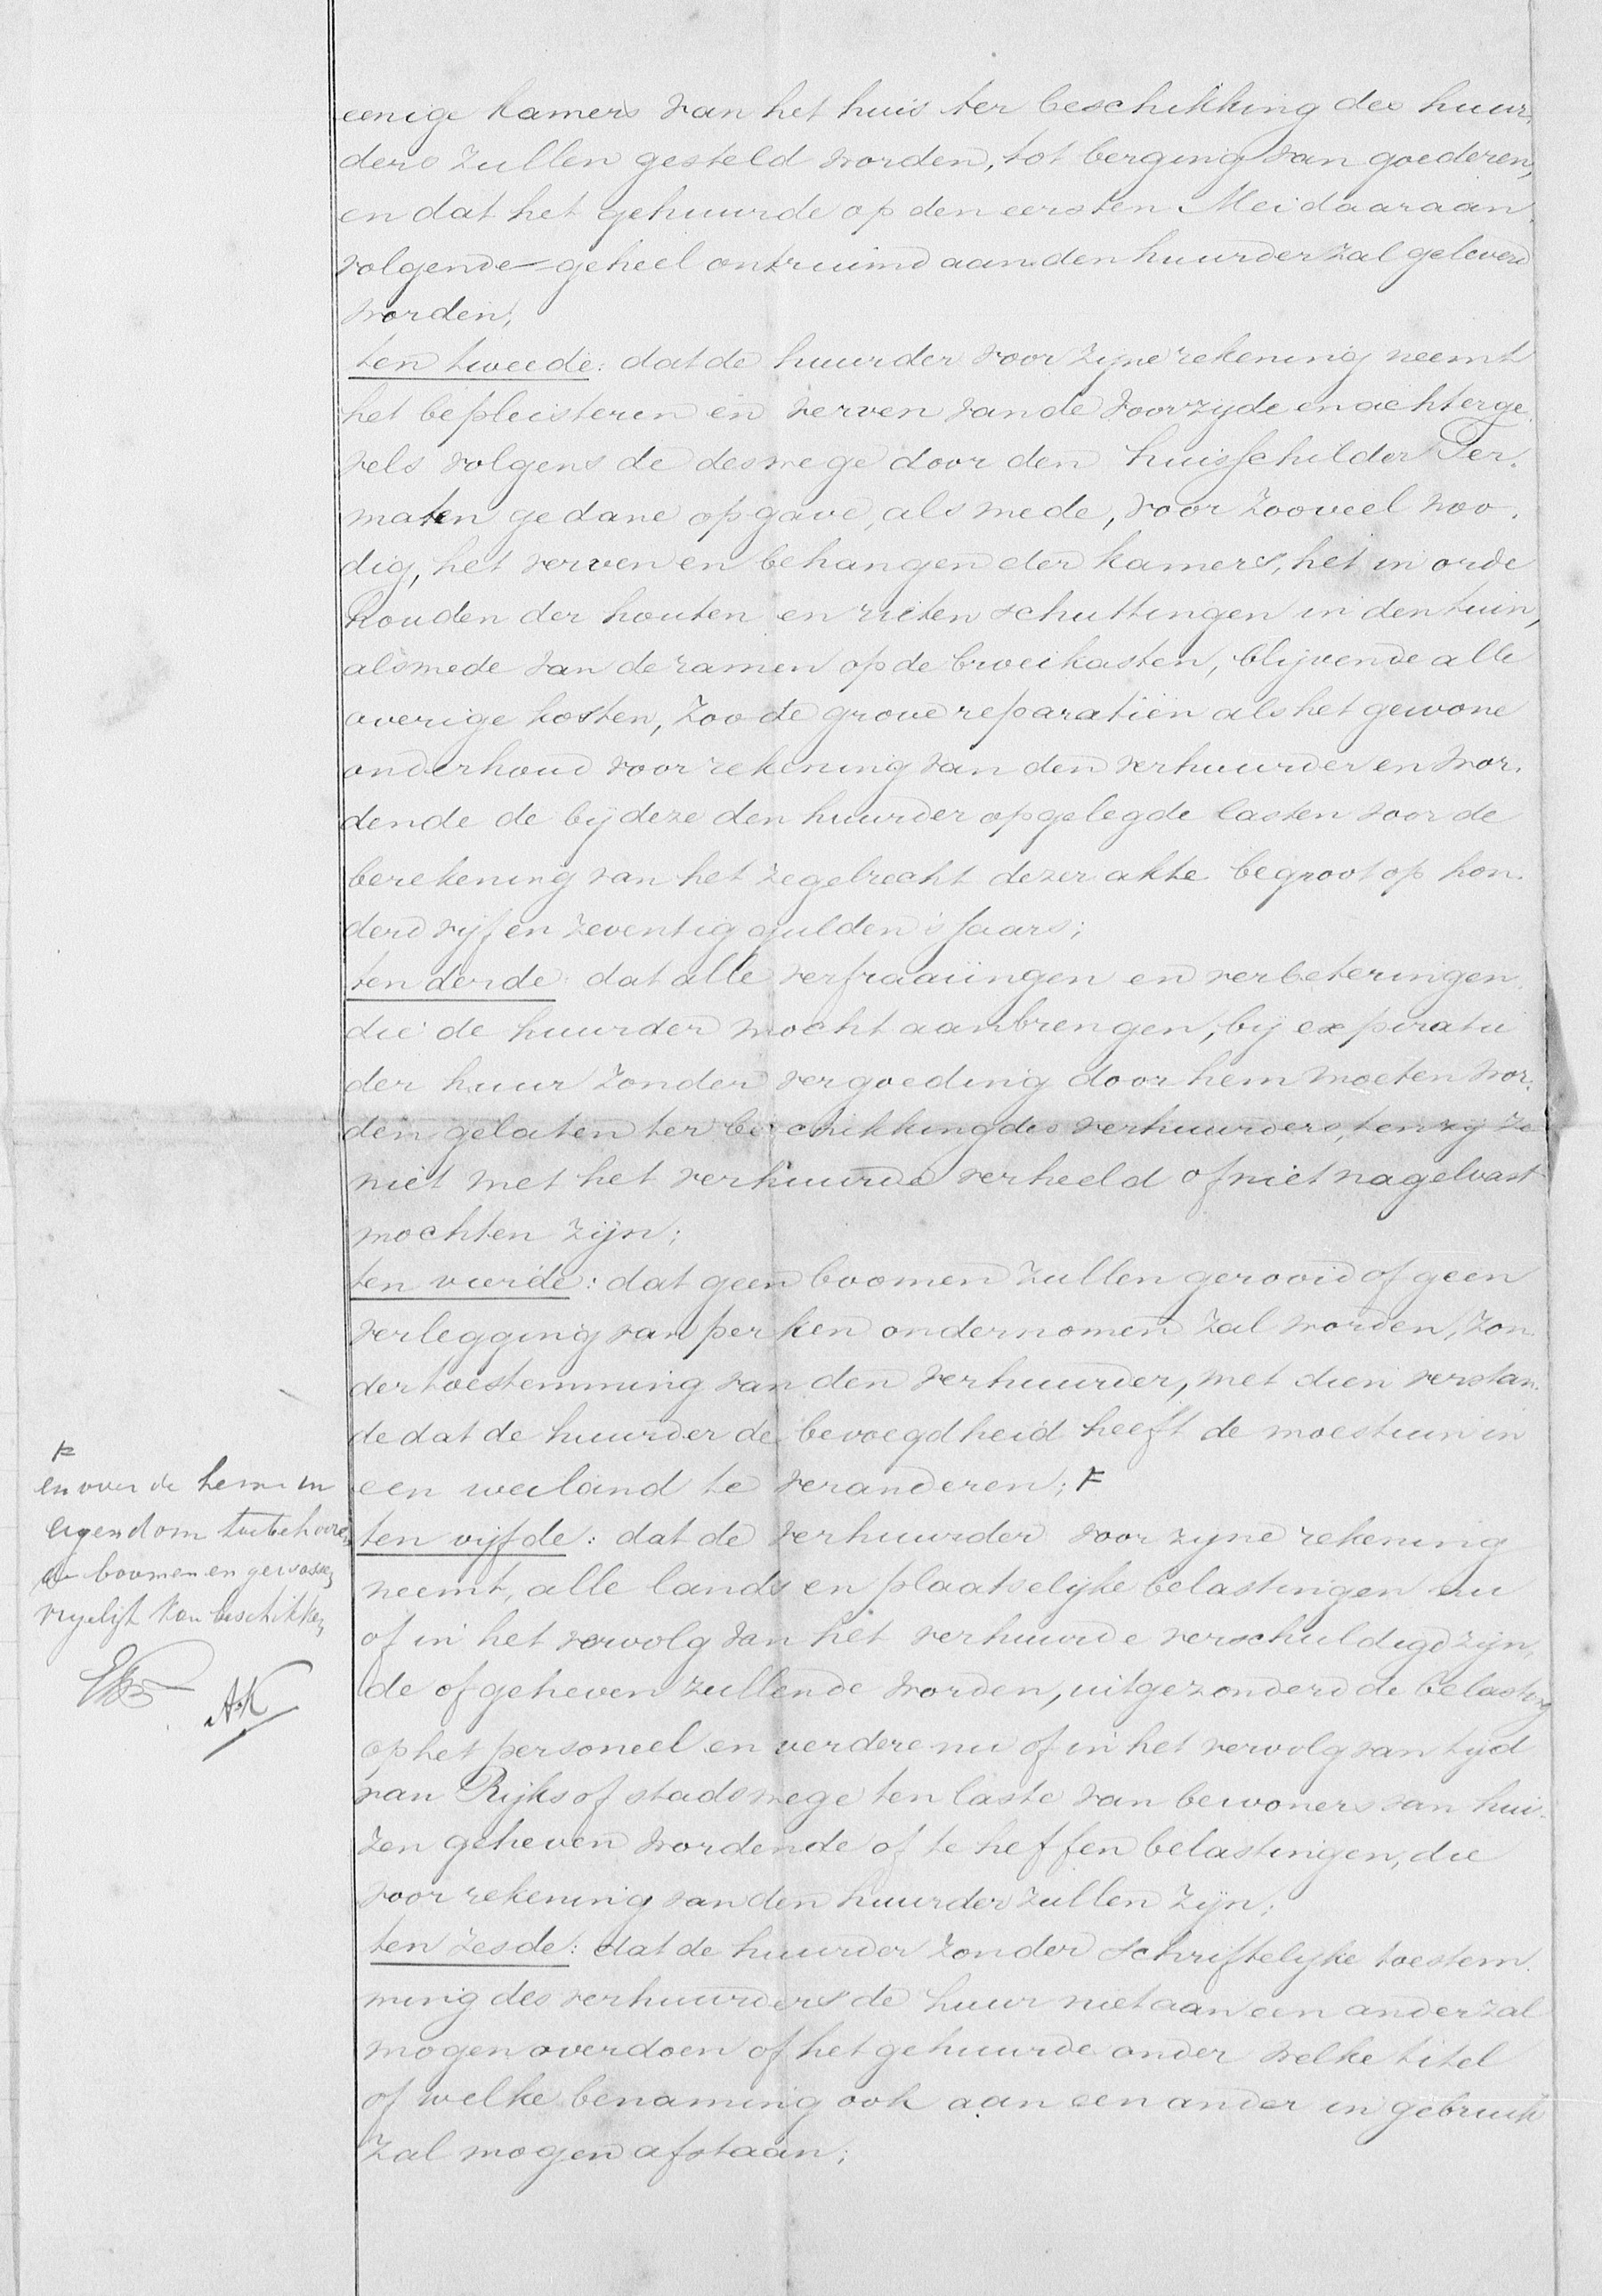 eenige kamers van het huis ter beschikking des huur-
ders zullen gesteld worden, tot berging van goederen,
en dat het gehuurde op den eersten Mei daaraan-
volgende geheel ontruimd aan den huurder zal geleverd
worden;
ten tweede: dat de huurder voor zijne rekening neemt
het bepleisteren en verven van de voorzijde en achterge-
vels volgens de deswege door den huisschilder Ter-
maten gedane opgave, alsmede, voor zooveel noo-
dig, het verven en behangen der kamers, het in orde
houden der houten en rieten schuttingen in den tuin,
alsmede van de ramen op de broeikasten, blijvende alle
overige kosten, zoo de grove reparatiën als het gewone
onderhoud voor rekening van den verhuurder en wor-
dende de bij deze den huurder opgelegde lasten voor de
berekening van het zegelrecht dezer akte begroot op hon-
derd vijf en zeventig gulden 's jaars;
ten derde: dat alle verfraaiingen en verbeteringen
die de huurder mocht aanbrengen, bij expiratie
der huur zonder vergoeding door hem moeten wor-
den gelaten ter beschikking des verhuurders, tenzij ze
niet met het verhuurde verheeld of niet nagelvast
mochten zijn;
ten vierde: dat geen boomen zullen gerooid of geen
verlegging van perken ondernomen zal worden, zon-
der toestemming van den verhuurder, met dien verstan-
de dat de huurder de bevoegdheid heeft de moestuin in
een weiland te veranderen; F
F
en over de hem in
eigendom toebehooren
de boomen en gewassen
vrijelijk kan beschikken,
AK
ten vijfde: dat de verhuurder voor zijne rekening
neemt, alle lands en plaatselijke belastingen nu
of in het vervolg van het verhuurde verschuldigd zijn-
de of geheven zullende worden, uitgezonderd de belasting
op het personeel en verdere nu of in het vervolg van tijd
van Rijks of stadswege ten laste van bewoners van hui-
zen geheven wordende of te heffen belastingen, die
voor rekening van den huurder zullen zijn;
ten zesde: dat de huurder zonder schriftelijke toestem-
ming des verhuurders de huur niet aan een ander zal
mogen overdoen of het gehuurde onder welke titel
of welke benaming ook aan een ander in gebruik
zal mogen afstaan;